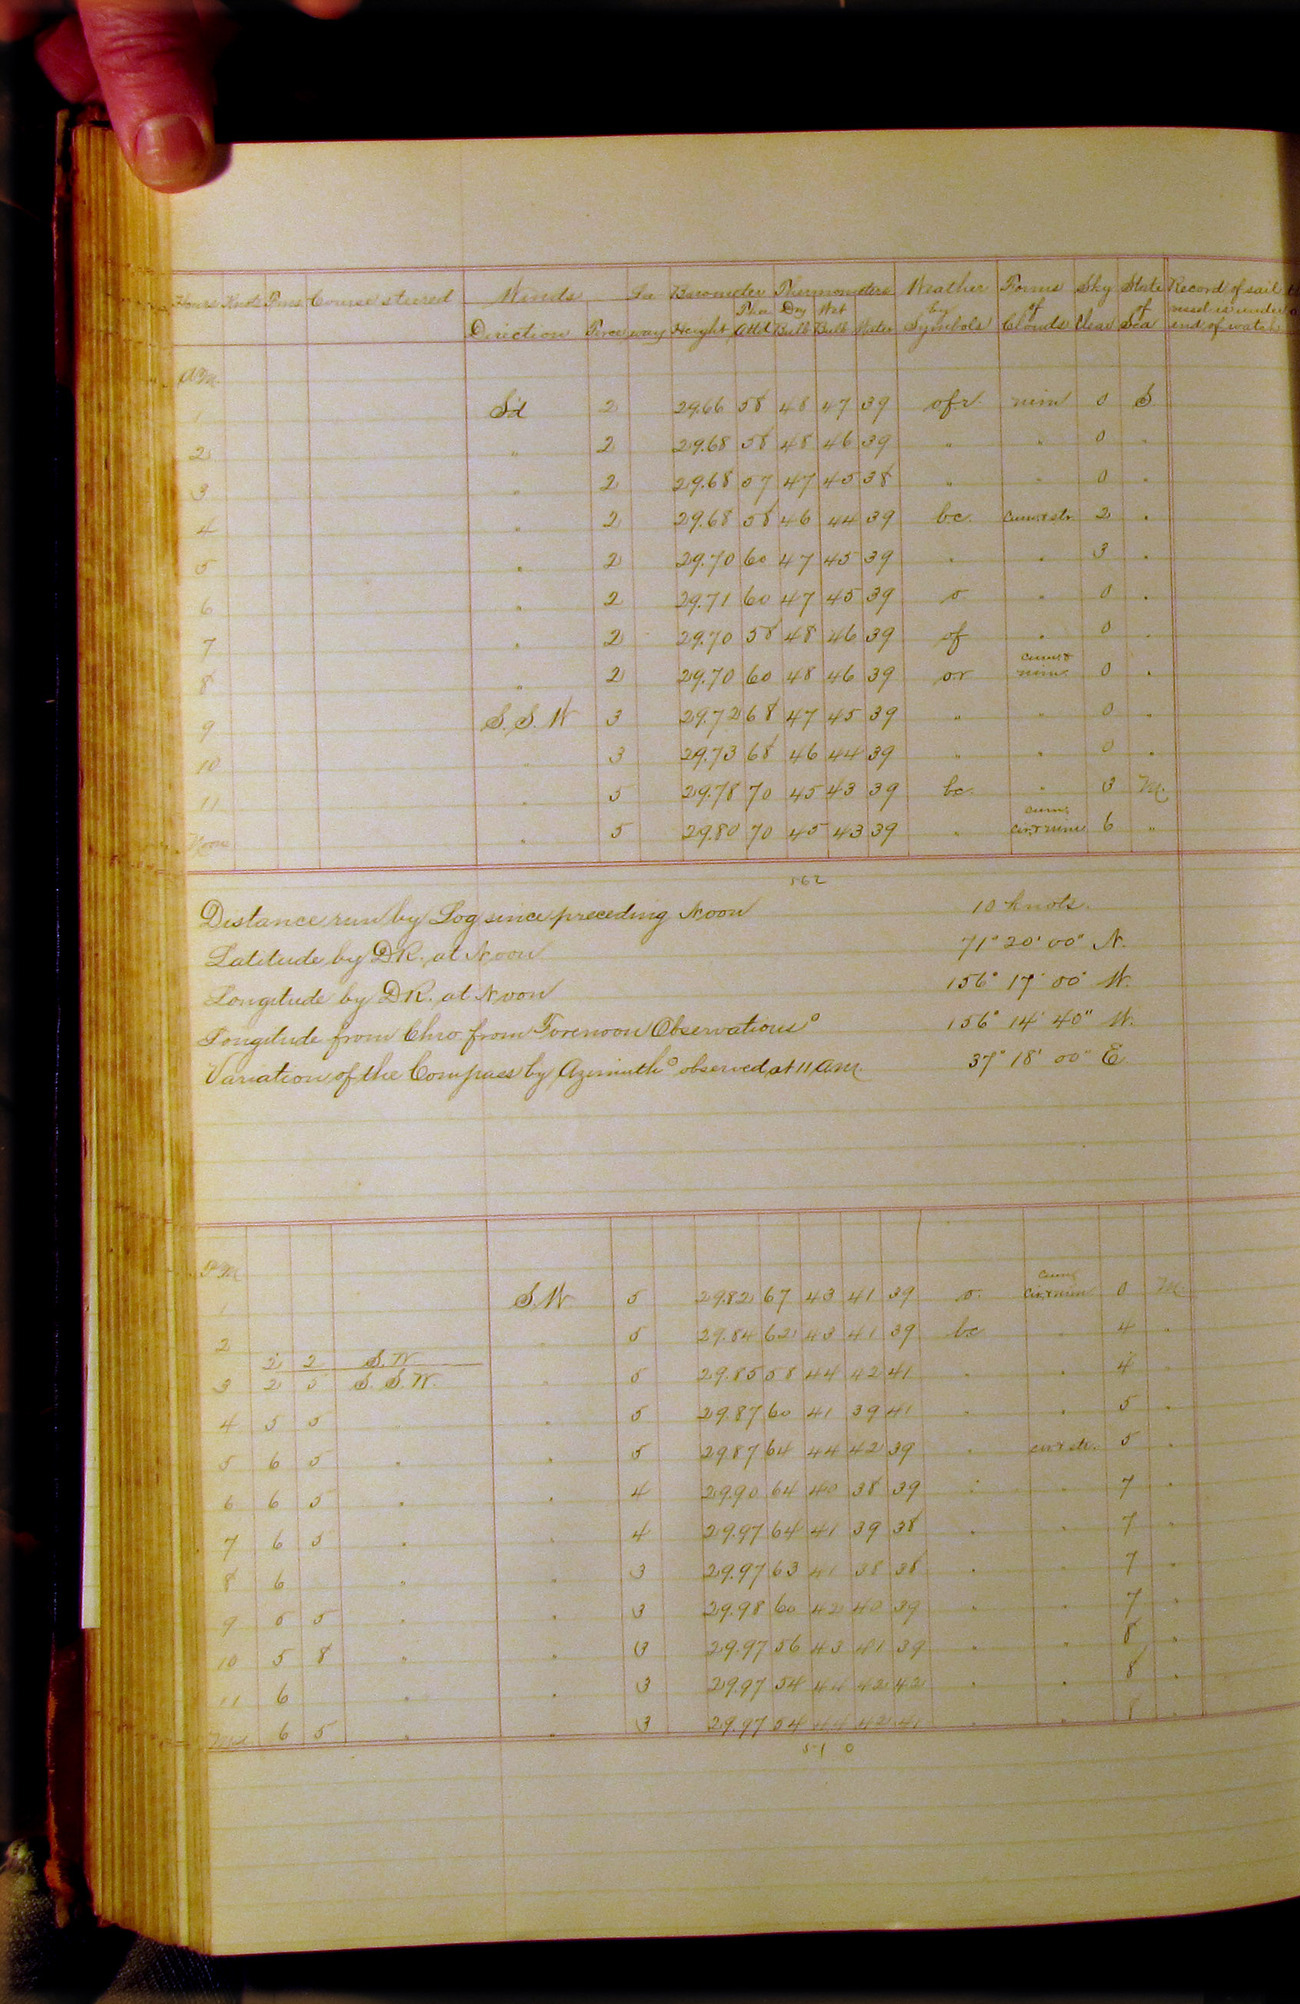 Hours Knots Fms Course steered Winds La Barometer Thermometers Weather Forms Sky State Record of sail
Direction Force way Height Ther Attd Dry Bulb Wet Bulb Water By Symbols of Clouds Clear of Sea vessel is under end of watch
A.M.
1 Sd 2 29.66 58 48 47 39 ofr. nim 0 S
2 " 2 29.68 58 48 46 39 " " 0 "
3 " 2 29.68 57 47 45 38 " " 0 "
4 " 2 29.68 58 46 44 39 bc. cum & str 2 "
5 " 2 29.70 60 47 45 39 " " 3 "
6 " 2 29.71 60 47 45 39 o " 0 "
7 " 2 29.70 58 48 46 39 of " 0 "
8 " 2 29.70 60 48 46 39 or cum & nim 0 "
9 S.S.W 3 29.72 68 47 45 39 " " 0 "
10 " 3 29.73 68 46 44 39 " " 0 "
11 " 5 29.78 70 45 43 39 bc. " 3 M.
Noon " 5 29.80 70 45 43 39 " cum, cir, & nim 6 "
562
Distance run by Log since preceding Noon 10 knots.
Latitude by D.R. at Noon 71° 20' 00" N.
Longitude by D.R. at Noon 156° 17' 00" W.
Longitude from Chro. from Forenoon Observations 156° 14' 40" W.
Variation of the Compass by Azimuth observed at 11 A.M. 37° 18' 00" E
P.M.
1 S.W 5 29.82 67 43 41 39 o. cum, cir, & nim 0 M.
2 " 5 29.84 62 43 41 39 bc " 4 "
2 2 S.W
3 2 5 S.S.W. " 5 29.85 58 44 42 41 " " 4 "
4 5 5 " " 5 29.87 60 41 39 41 " " 5 "
5 6 5 " " 5 29.87 64 44 42 39 " cir & str. 5 "
6 6 5 " " 4 29.90 64 40 38 39 " " 7 "
7 6 5 " " 4 29.97 64 41 39 38 " " 7 "
8 6 " " 3 29.97 63 41 38 38 " " 7 "
9 5 5 " " 3 29.98 60 42 40 39 " " 7 "
10 5 8 " " 3 29.97 56 43 41 39 " " 8 "
11 6 " " 3 29.97 54 44 42 42 " " 8 "
Mid. 6 5 " " 3 29.97 54 44 42 41 " " 8 "
510